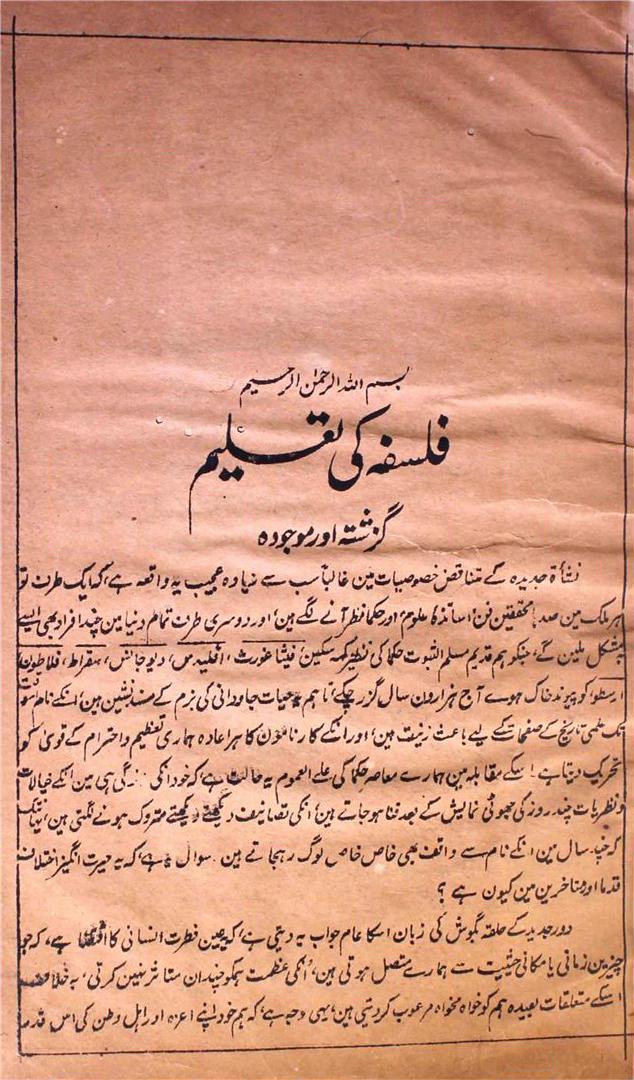 بسم اللہ الرحمٰن الرحیم
فلسفہ کی تعلیم
گزشتہ اور موجودہ
نشأۃ جدیدہ کے متناقض خصوصیات مین غالباً سب سے زیادہ عجیب یہ واقعہ ہے، کہ ایک طرف تو
ہر ملک مین صدہا محققین فن، اساتذۂ علوم، اور حکما نظر آنے لگے ہین، اور دوسری طرف تمام دنیا مین چند افراد بھی ایسے
بمشکل ملین گے، جنکو ہم قدیم مسلم الثبوت حکما کی نظیر کہہ سکین، فیثاغورث، اقلیدس، دیوجانس، سقراط، فلاطون،
ارسطو کو پیوند خاک ہوے آج ہزارون سال گزر چکے، تاہم یہ حیات جاودانی کی بزم کے مسند نشین ہین، انکے نام اسوقت
تک علمی تاریخ کے صفحات کے لیے باعث زینت ہین، اور انکے کارنامون کا ہر اعادہ ہماری تعظیم و احترام کے قویٰ کو
تحریک دیتا ہے! اسکے مقابلہ مین ہمارے معاصر حکما کی علے العموم یہ حالت ہے، کہ خود انکی زندگی ہی مین انکے خیالات
و نظریات چند روز کی جھوٹی نمایش کے بعد فنا ہو جاتے ہین، انکی تصانیف دیکھتے دیکھتے متروک ہونے لگتی ہین،
کہ چند سال مین انکے نام سے واقف بھی خاص خاص لوگ رہجاتے ہین. سوال یہ ہے، کہ یہ حیرت انگیز اختلاف
قدما اور متاخرین مین کیون ہے ؟
دور جدید کے حلقہ بگوش کی زبان اسکا عام جواب یہ دیتی ہے، کہ یہ عین فطرت انسانی کا اقتضا ہے، کہ جو
چیزین زمانی یا مکانی حیثیت سے ہمارے متصل ہوتی ہین، انکی عظمت ہمکو چندان متاثر نہین کرتی، بہ خلاف
اسکے متعلقات بعیدہ ہم کو خواہ مخواہ مرعوب کر دیتی ہین، یہی وجہ ہے، کہ ہم خود اپنے اعزہ اور اہل وطن کی اس قدر